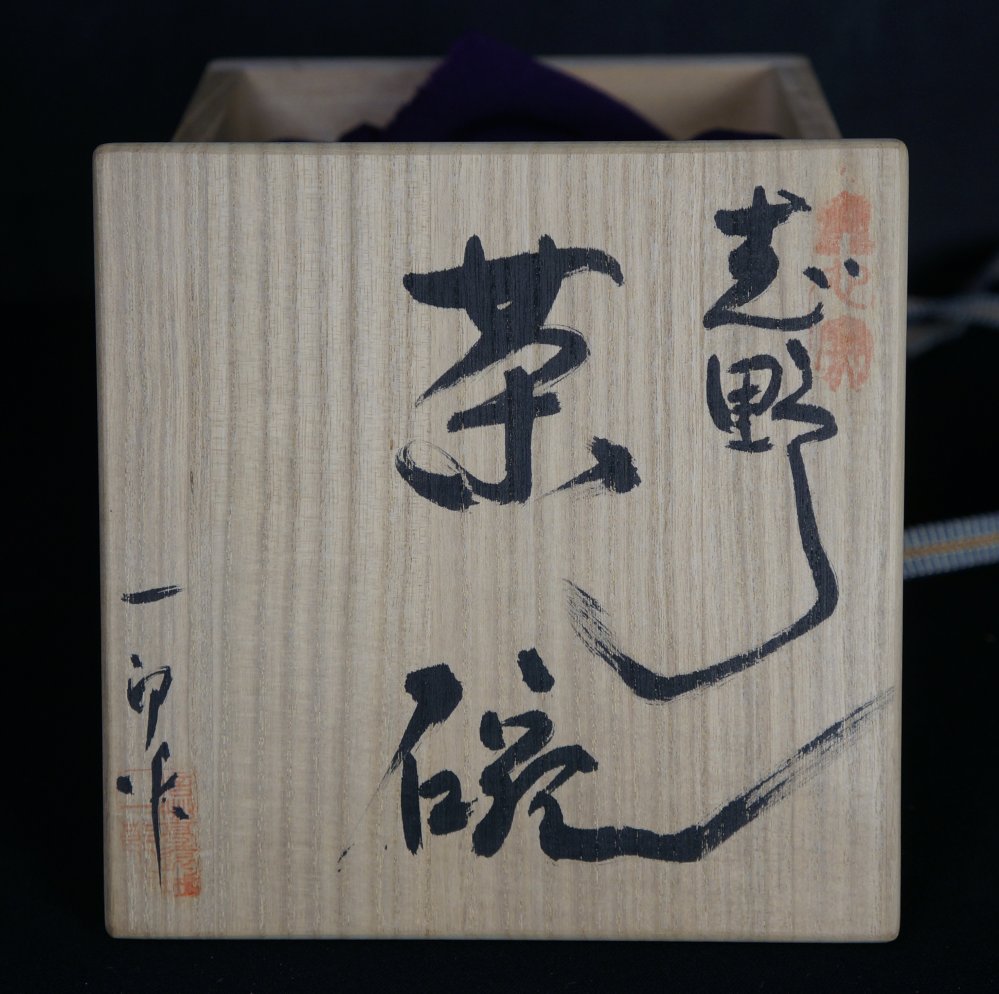 志野
茶碗
一印作